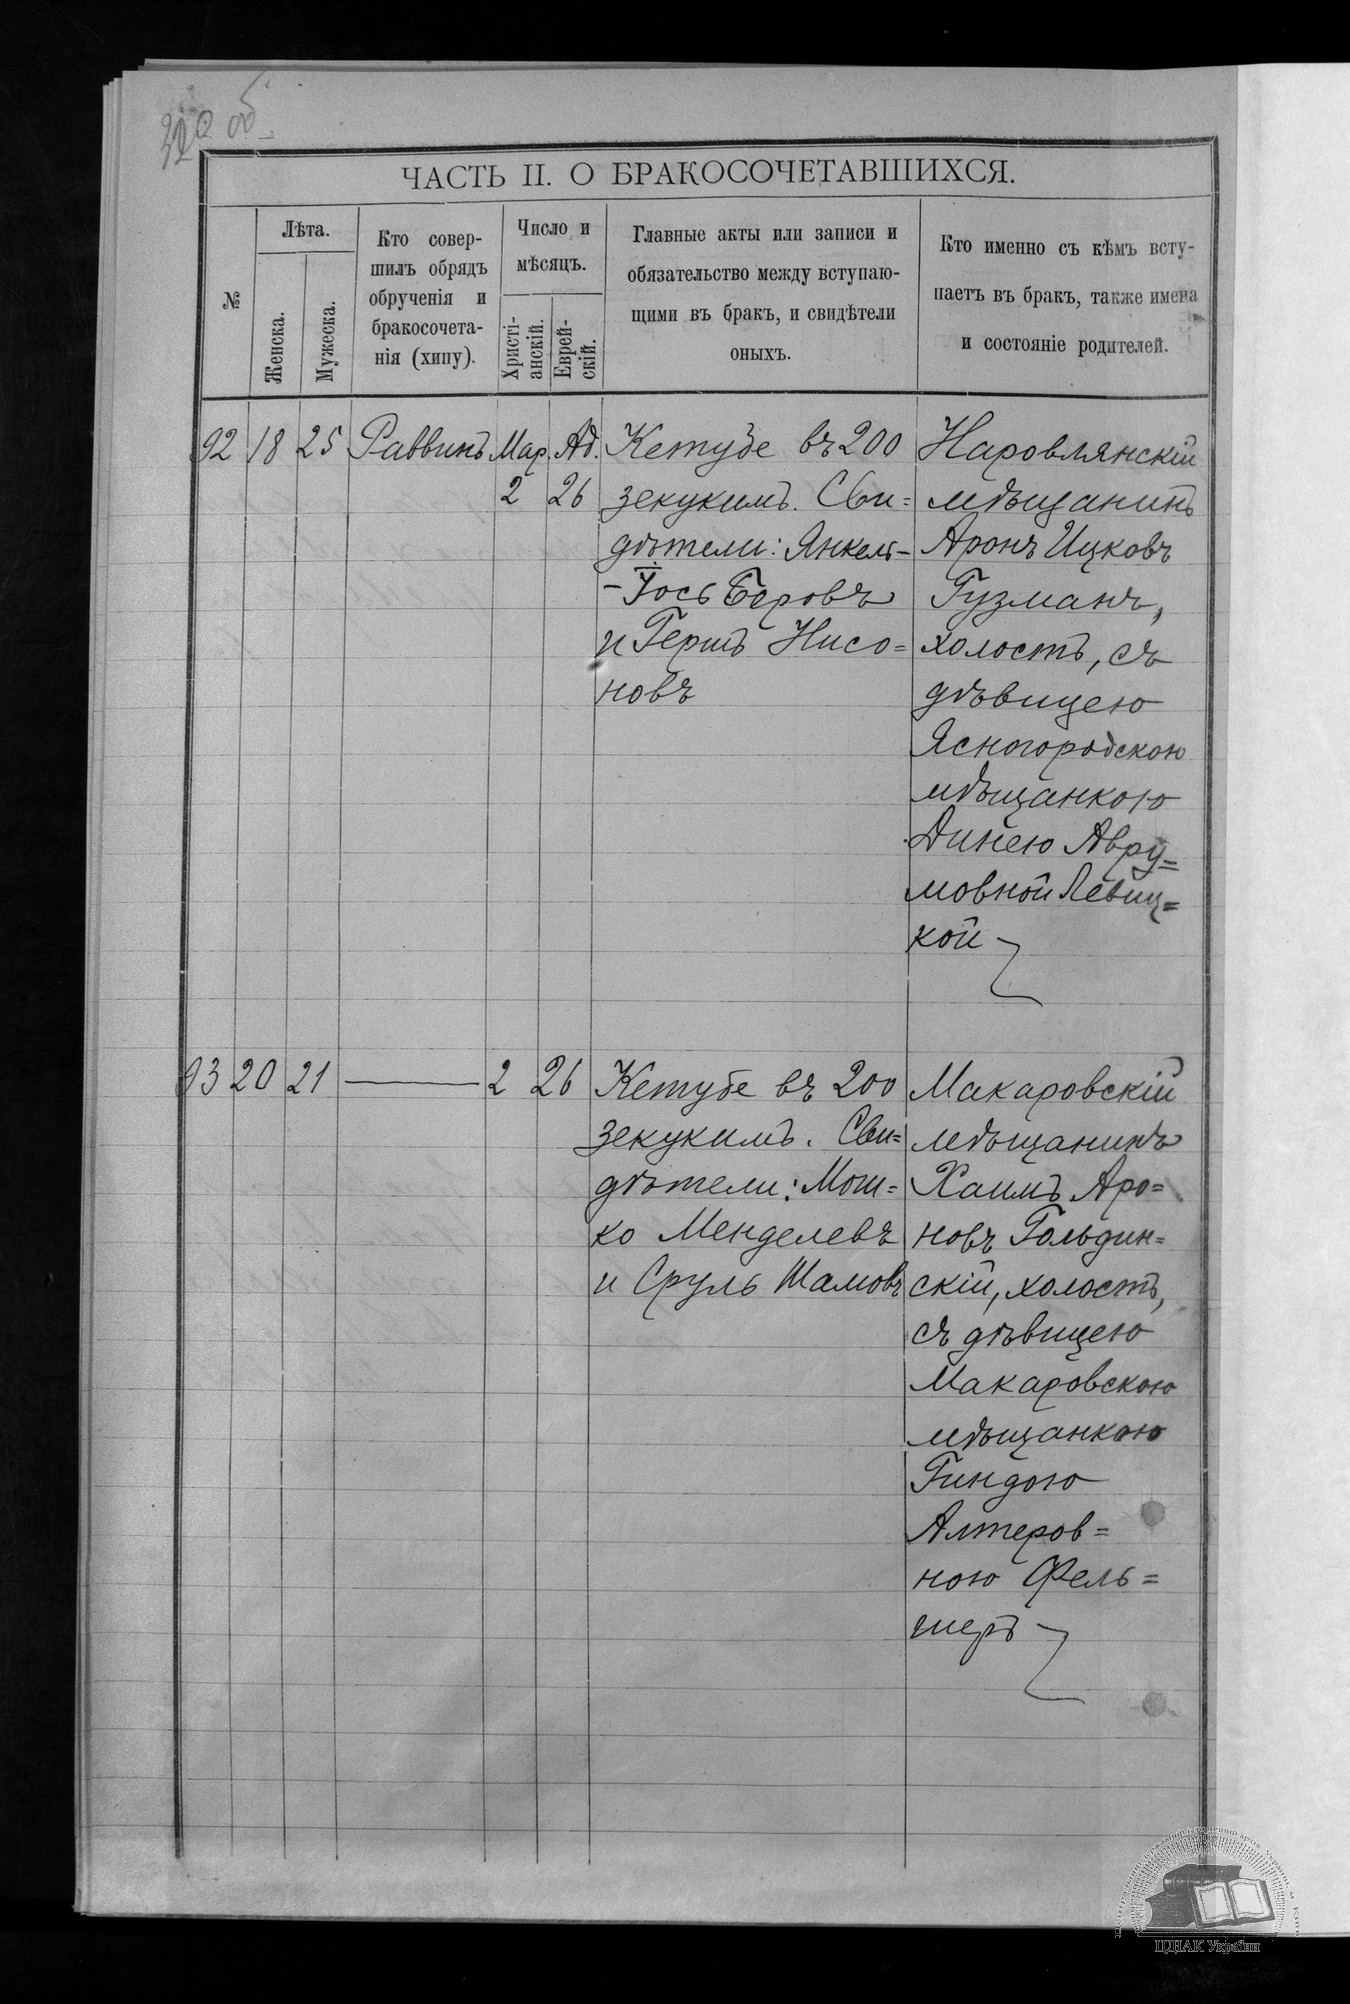 об.
ЧАСТЬ II. О БРАКОСОЧЕТАВШИХСЯ.
№
Лѣта.
Женска.
Мужеска.
Кто совер-
шилъ обрядъ
обрученія и
бракосочета-
нія (хипу).
Число и
мѣсяцъ.
Христі-
анскій.
Еврей-
скій.
Главные акты или записи и
обязательство между вступаю-
щими въ бракъ, и свидѣтели
оныхъ.
Кто именно съ кѣмъ всту-
паетъ въ бракъ, также имена
и состояніе родителей.
92 18 25 Раввинъ Мар. Ад.
2 26
Кетубе въ 200
зекукимъ. Сви=
дѣтели: Янкель-
-Іось Беровъ
и Гершъ Нисо=
новъ
Наровлянскій
мѣщанинъ
Аронъ Ицковъ
Гузманъ,
холостъ, съ
дѣвицею
Ясногородскою
мѣщанкою
Динею Авру=
мовной Левиц=
кой
93 20 21 — 2 26
Кетубе въ 200
зекукимъ. Сви=
дѣтели: Мош=
ко Менделевъ
и Сруль Шамовъ
Макаровскій
мѣщанинъ
Хаимъ Аро=
новъ Гольдин=
скій, холостъ,
съ дѣвицею
Макаровскою
мѣщанкою
Гиндою
Алтеров=
ною Фель=
шеръ
ЦДІАК України